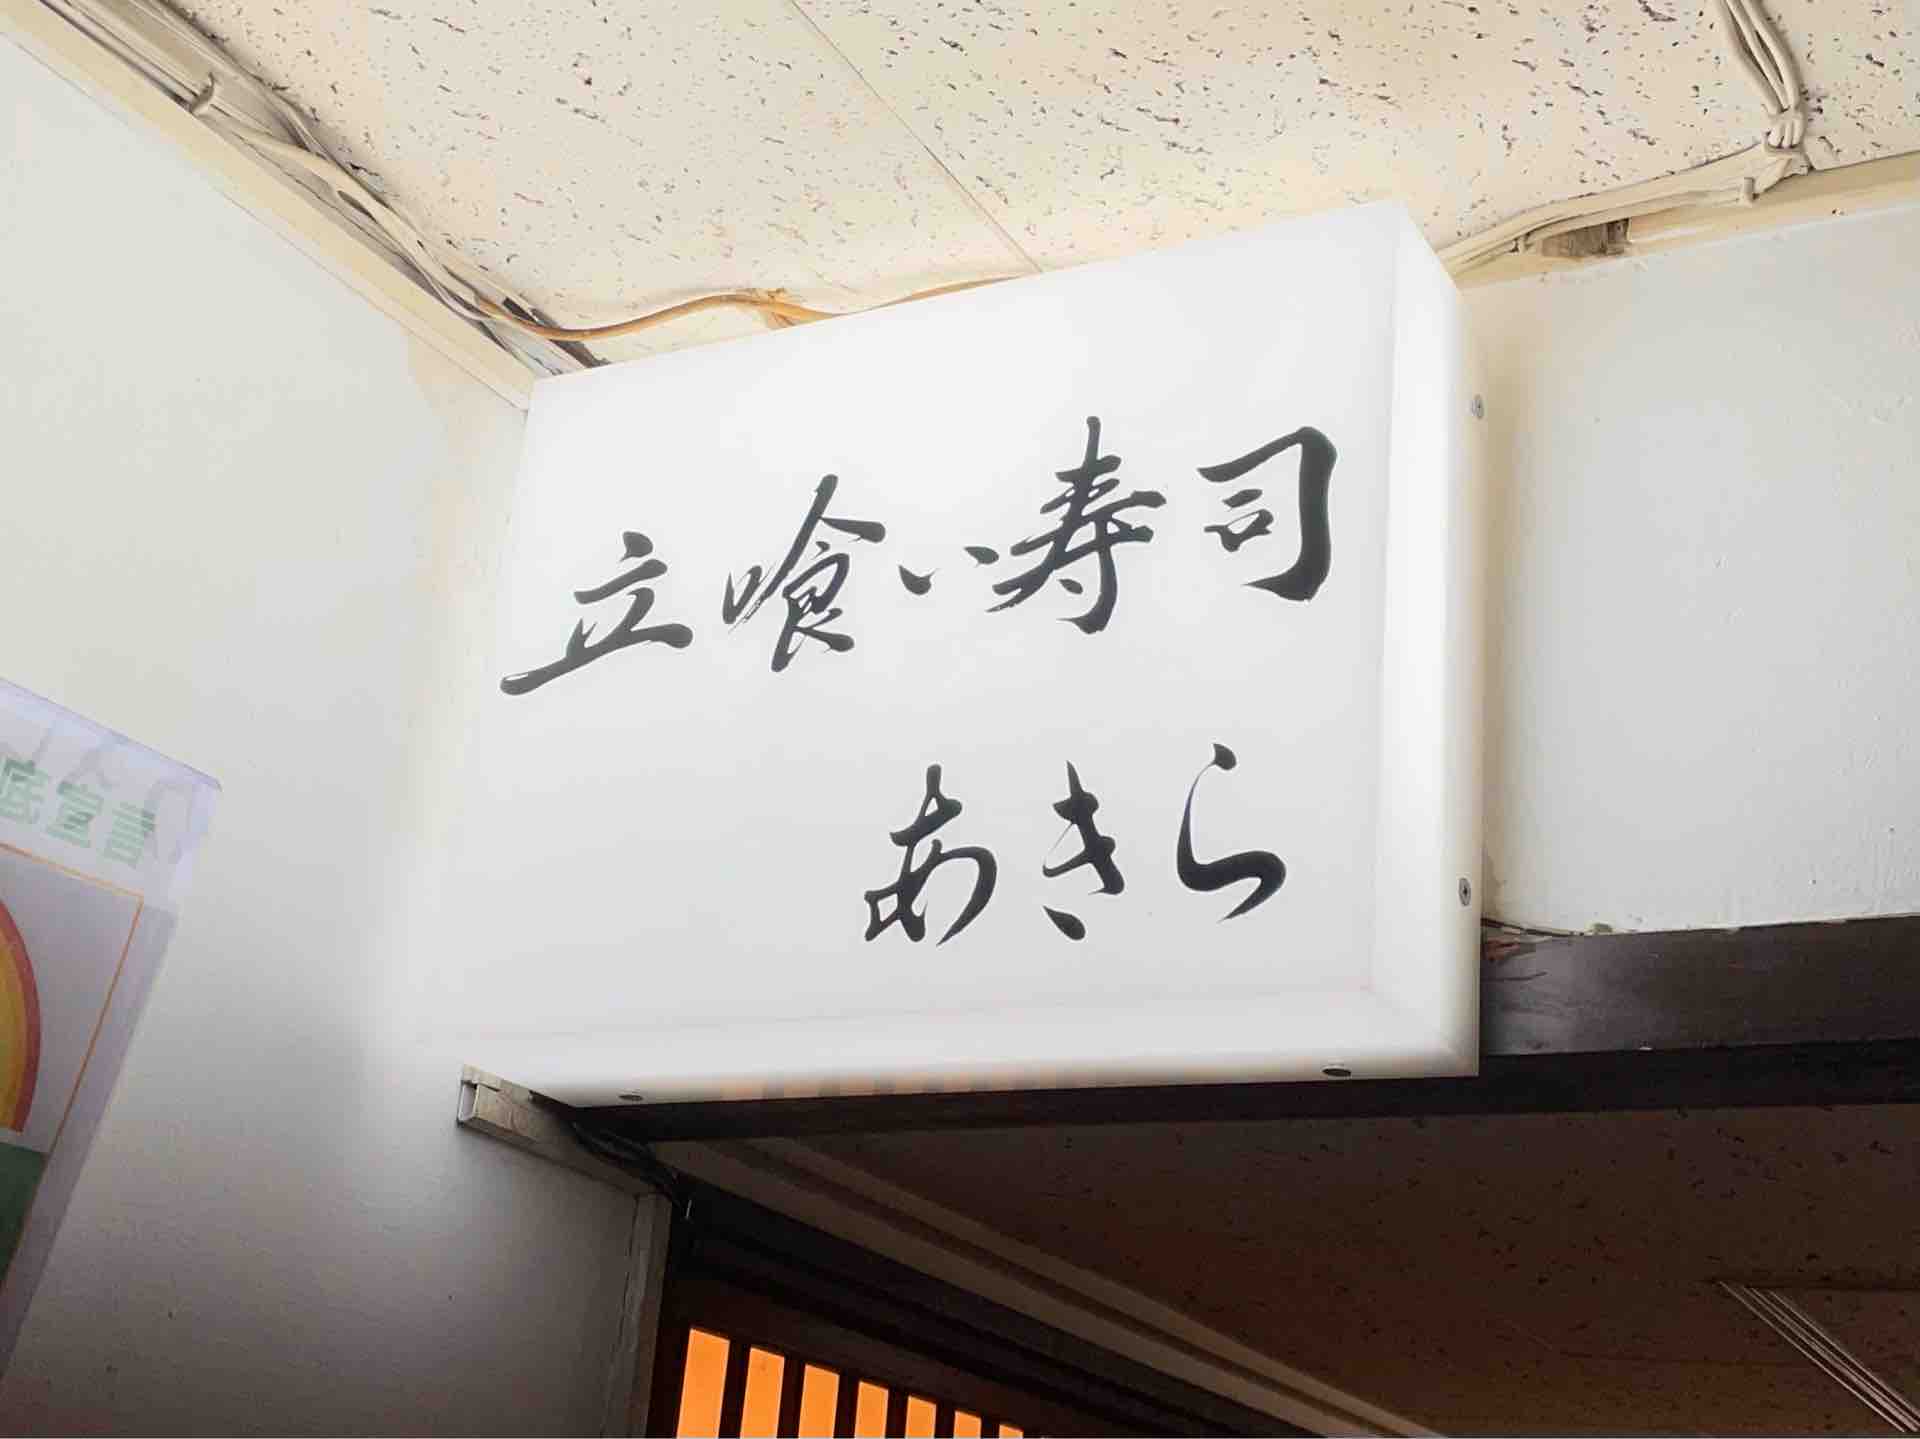 立喰い寿司
あきら
底宣言